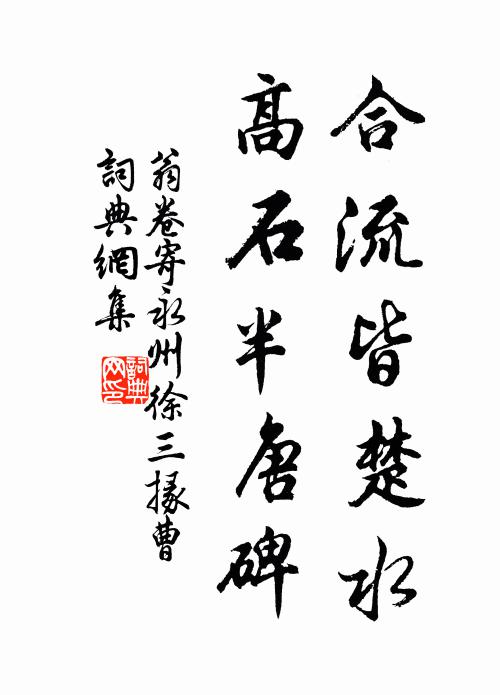 合流皆楚水
高石半唐碑
翁卷寄永州徐三掾曹
詞典網集
詞典網印